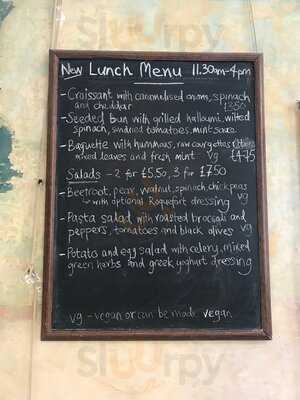 New Lunch Menu 11.30am-4pm
- Croissant with caramelised onion, spinach
and cheddar £3.50
- Seeded bun with grilled halloumi, wilted
spinach, sundried tomatoes, mint sauce
- Baguette with hummous, raw courgettes
mixed leaves and fresh mint vg £4.75
Salads - 2 for £5.50, 3 for £7.50
- Beetroot, pear, walnut, spinach, chick peas
with optional Roquefort dressing vg
- Pasta salad with roasted broccoli and
peppers, tomatoes and black olives vg
- Potato and egg salad with celery, mixed
green herbs and greek yoghurt dressing
vg - vegan or can be made vegan
Sluurpy
Sluurpy